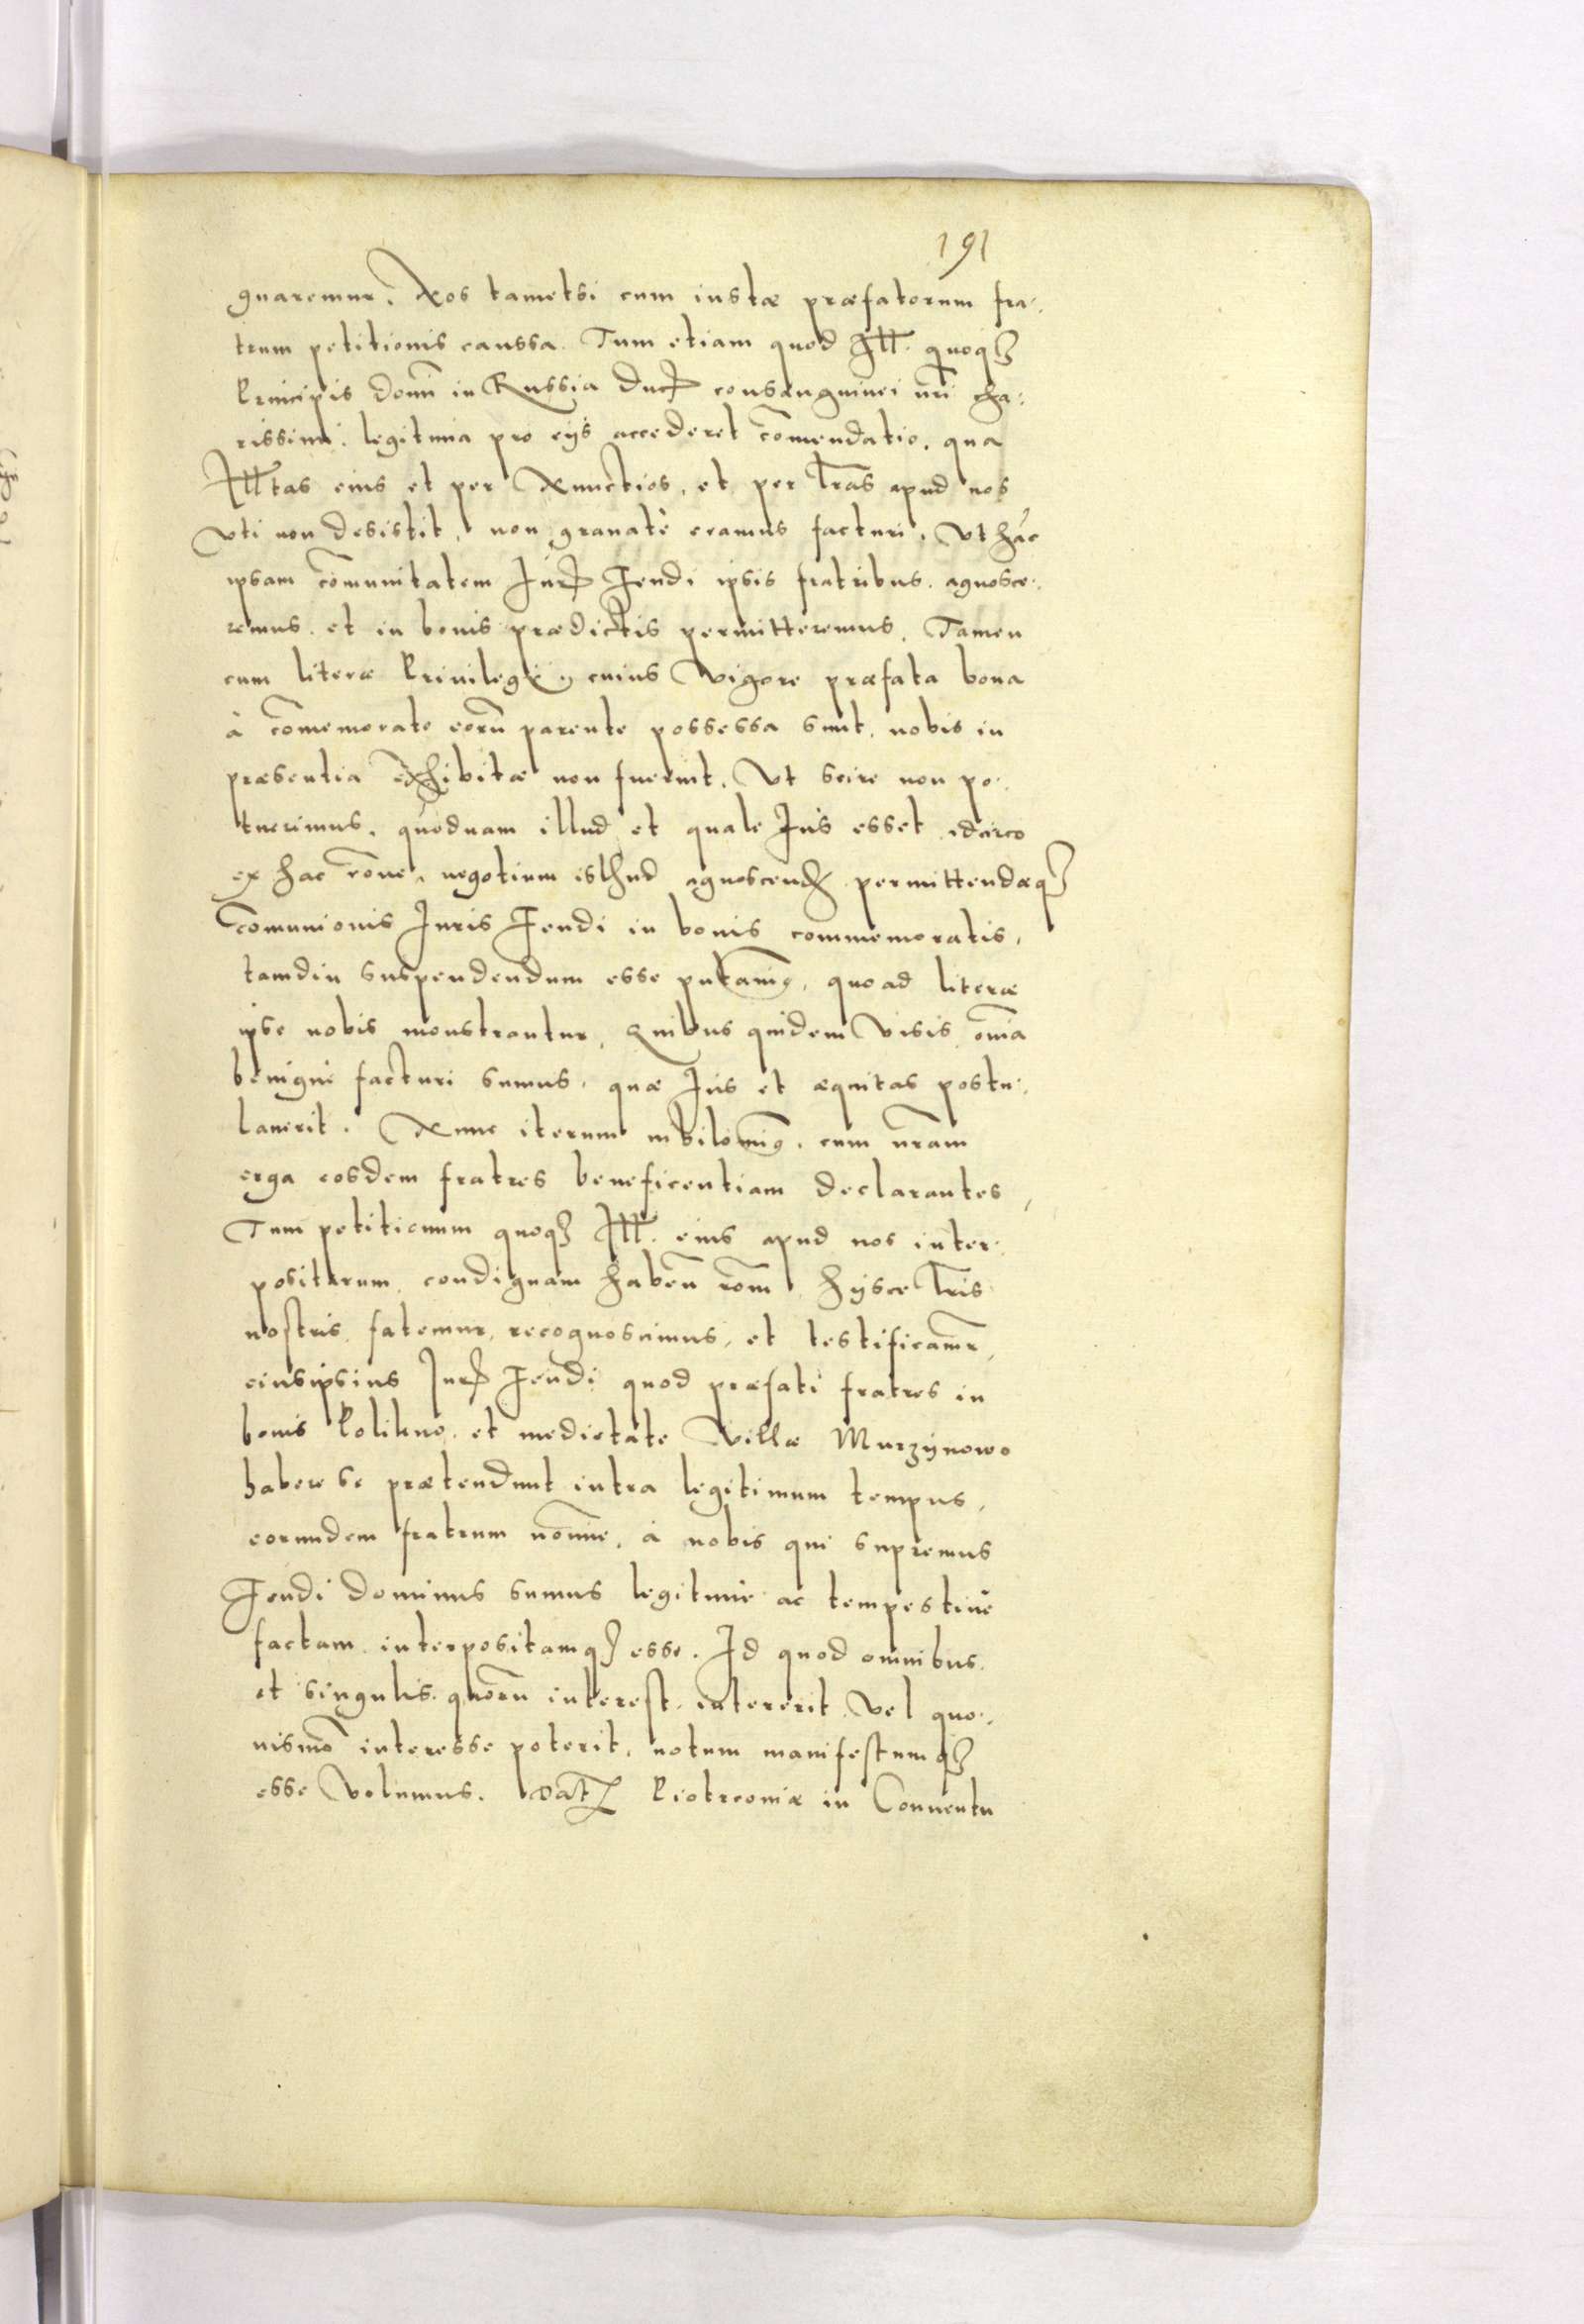 191
gnaremur. Nos tametsi cum iustæ præfatorum fra-
trum petitionis caussa. Tum etiam quod Ill. quoq₃
Principis Domĩ in Prussia Ducis consanguinei nr̃i cha-
rissimi. legitima pro eijs accederet com̃endatio, qua
Ill̃tas eius et per Nunctios, et per Lr̃as apud nos
vti non desistit, non grauatè eramus facturi, Vt hãc
ipsam com̃unitatem Juris Feudi ipsis fratribus agnosce-
remus. et in bonis prædictis permitteremus, Tamen
cum literæ Priuilegij, cuius Vigore præfata bona
à com̃emorato eorũ parente possessa sunt, nobis in
præsentia exhibitæ non fuerint, Vt scire non po-
tuerimus, quodnam illud et quale Jus esset idcirco
ex hac rõne, negotium isthud agnoscendæ permittendæq₃
com̃unionis Juris Feudi in bonis commemoratis,
tamdiu suspendendum esse putauimꝰ, quoad literæ
ipsæ nobis monstrantur, Quibus quidem Visis om̃ia
benignè facturi sumus, quæ Jus et æquitas postu-
lauerit. Nunc iterum nihilominꝰ, cum nr̃am
erga eosdem fratres beneficentiam declarantes,
Tum petitionum quoq₃ Ill. eius apud nos inter-
positarum, condignam habeñ rõm, hijsce Lr̃is
nostris fatemur, recognoscimus, et testificamr̃,
eiusipsius Juris Feudi quod præfati fratres in
bonis Polikno, et medietate Villæ Murzÿnowo
habere se prætendunt intra legitimum tempus,
eorundem fratrum noĩe, à nobis qui supremus
Feudi dominus sumus legitimè ac tempestiuè
factam interpositamq₃ esse. Id quod omnibus
et singulis quorũ interest, intererit, Vel quo-
uismõ interesse poterit, notum manifestumq₃
esse Volumus. Dat̃ Piotrcouiæ in Conuentu